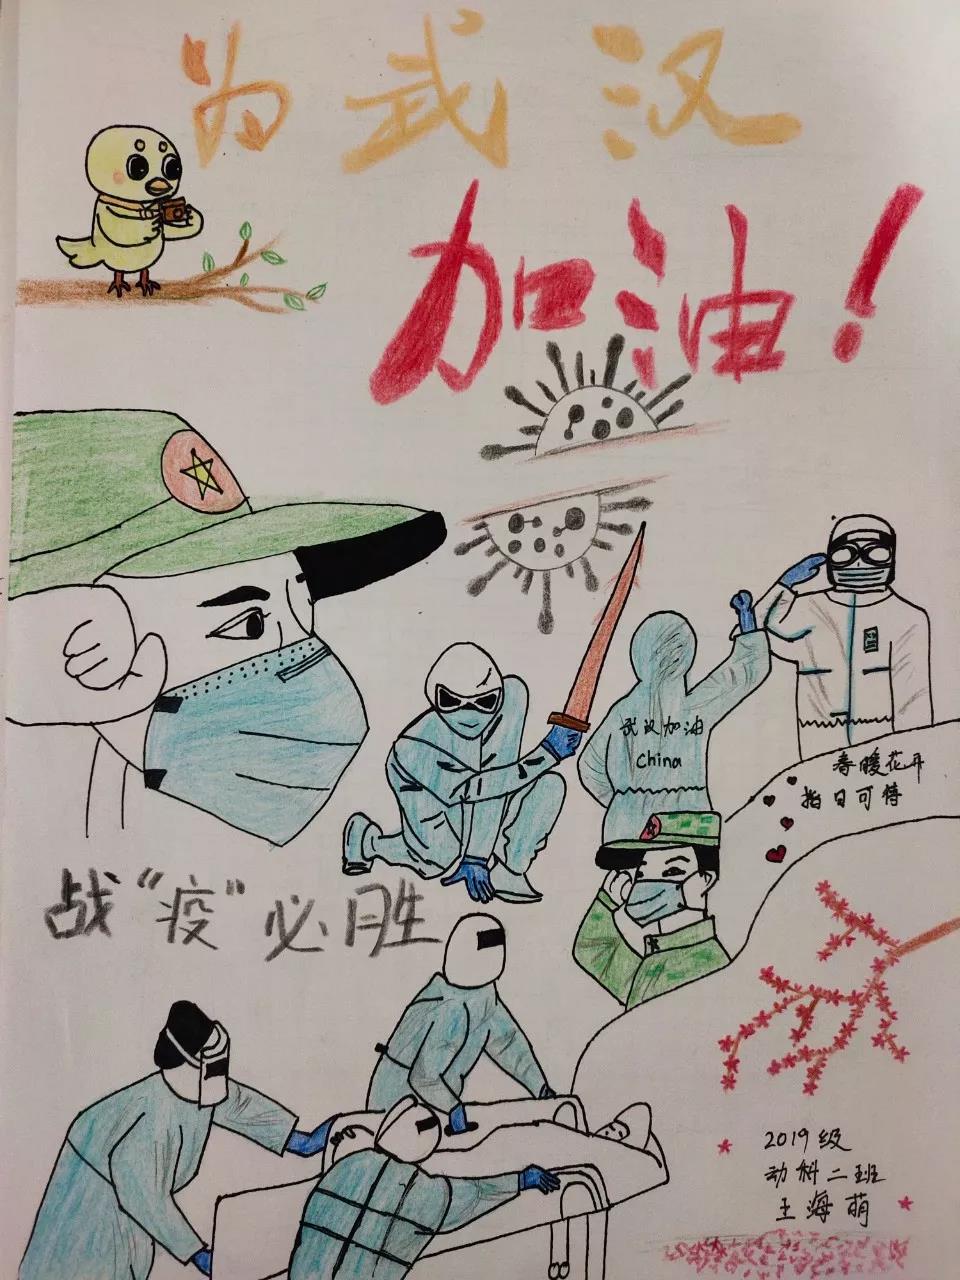 为武汉
加油！
武汉加油
China
春暖花开
指日可待
战“疫”必胜
2019级
动科二班
王海萌